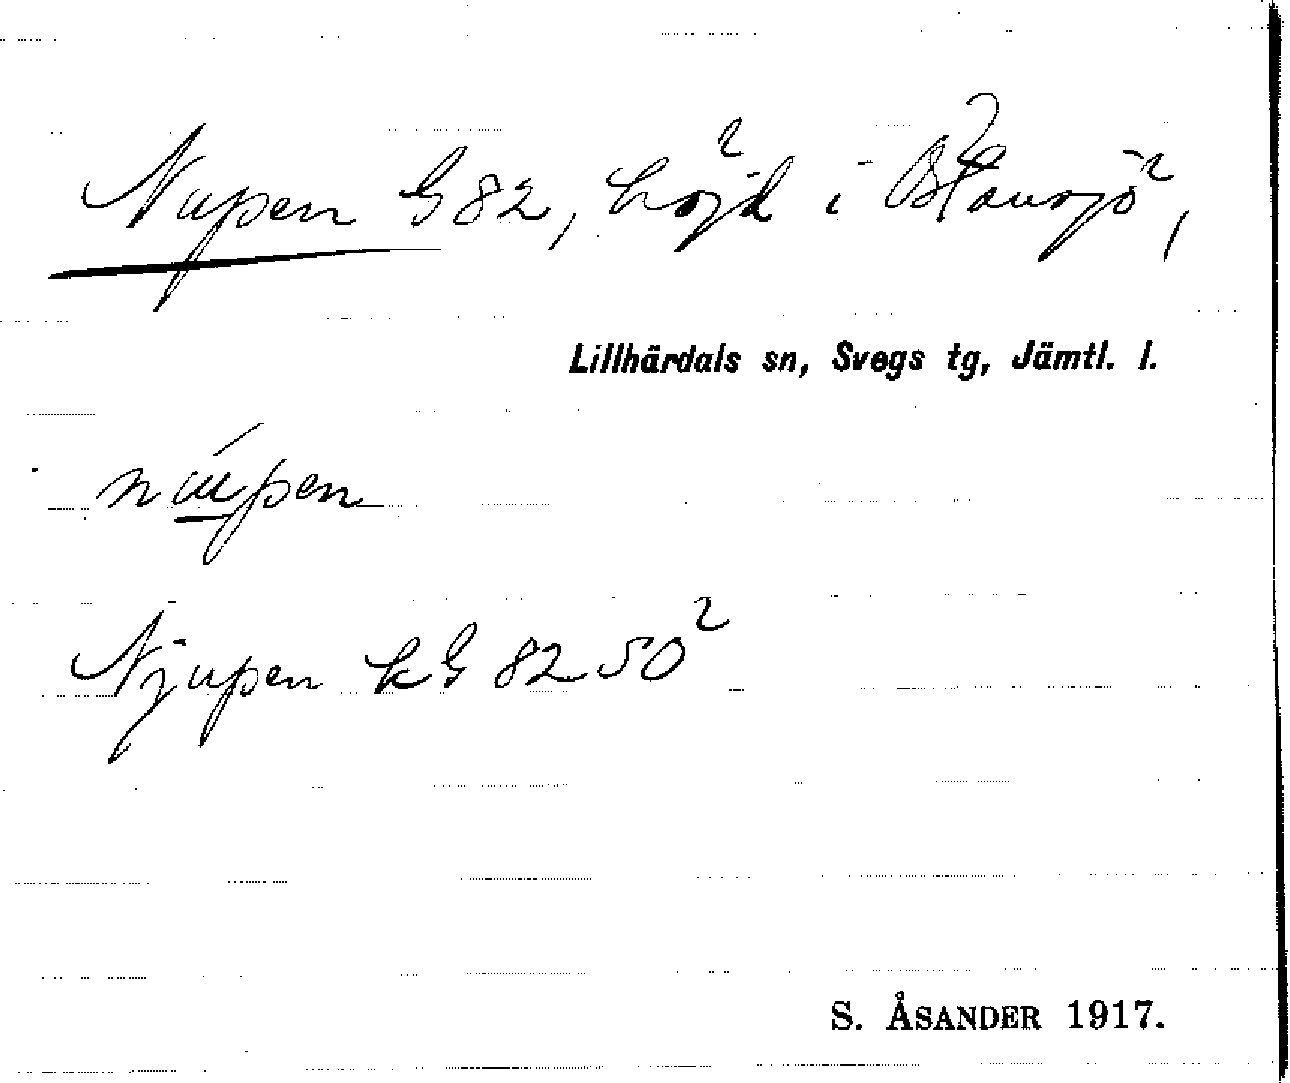 Nupen G82, höjd i
Lillhärdals sn, Svegs tg, Jämtl. l.
nupen
Njupen kG 82 50
S. ÅSANDER 1917.